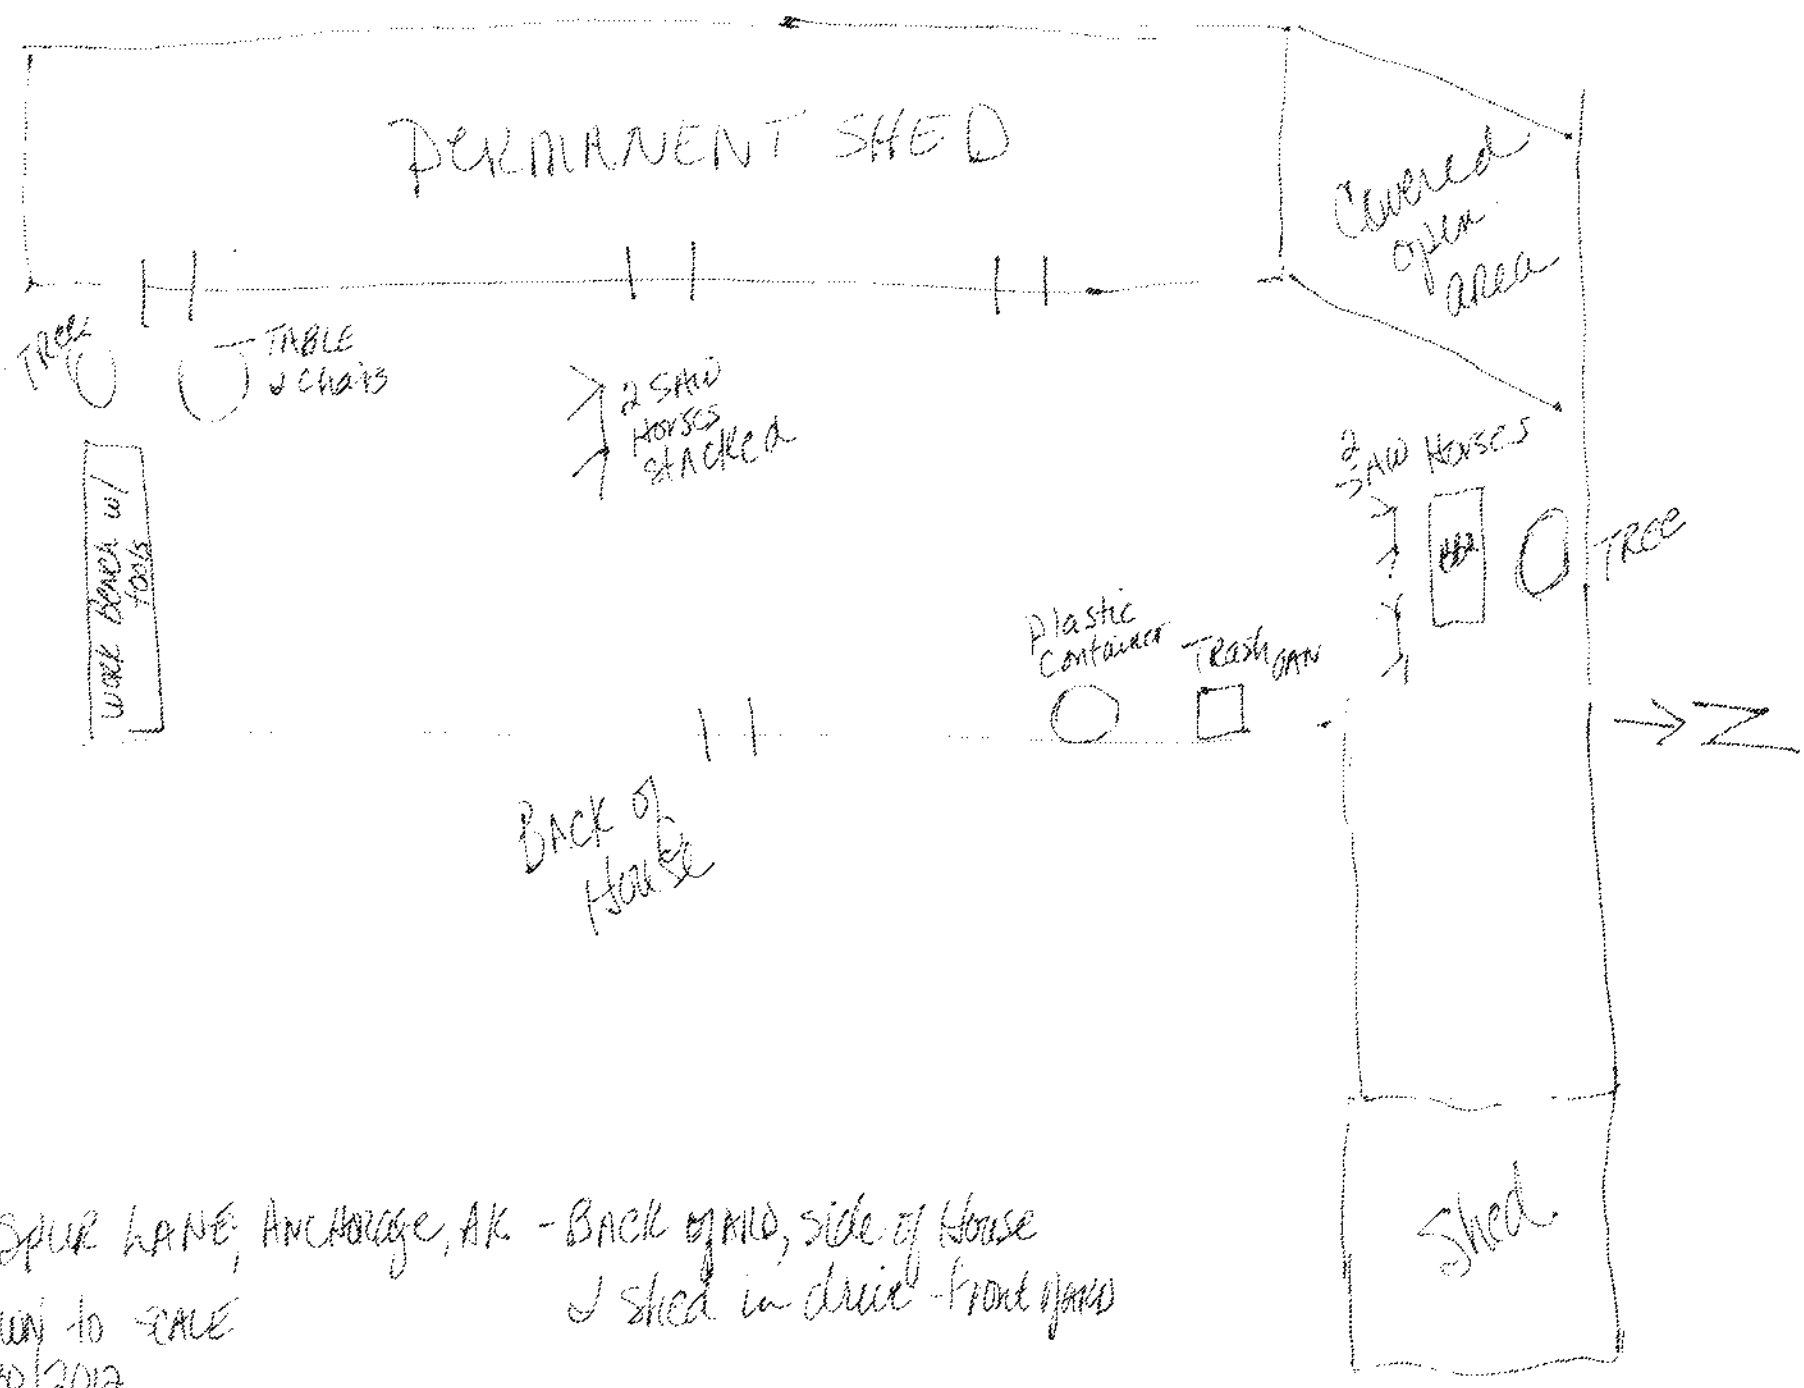 PERMANENT SHED
Covered
open
area
TREE
TABLE
& Chairs
2 SAW
Horses
STACKED
2
SAW HORSES
TREE
WORK BENCH w/
tools
Plastic
Container
TRash CAN
N
BACK of
House
Shed
SPUR LANE, ANCHORAGE, AK - BACK YARD, side of House
& shed in drive - FRONT YARD
to SCALE
/2012